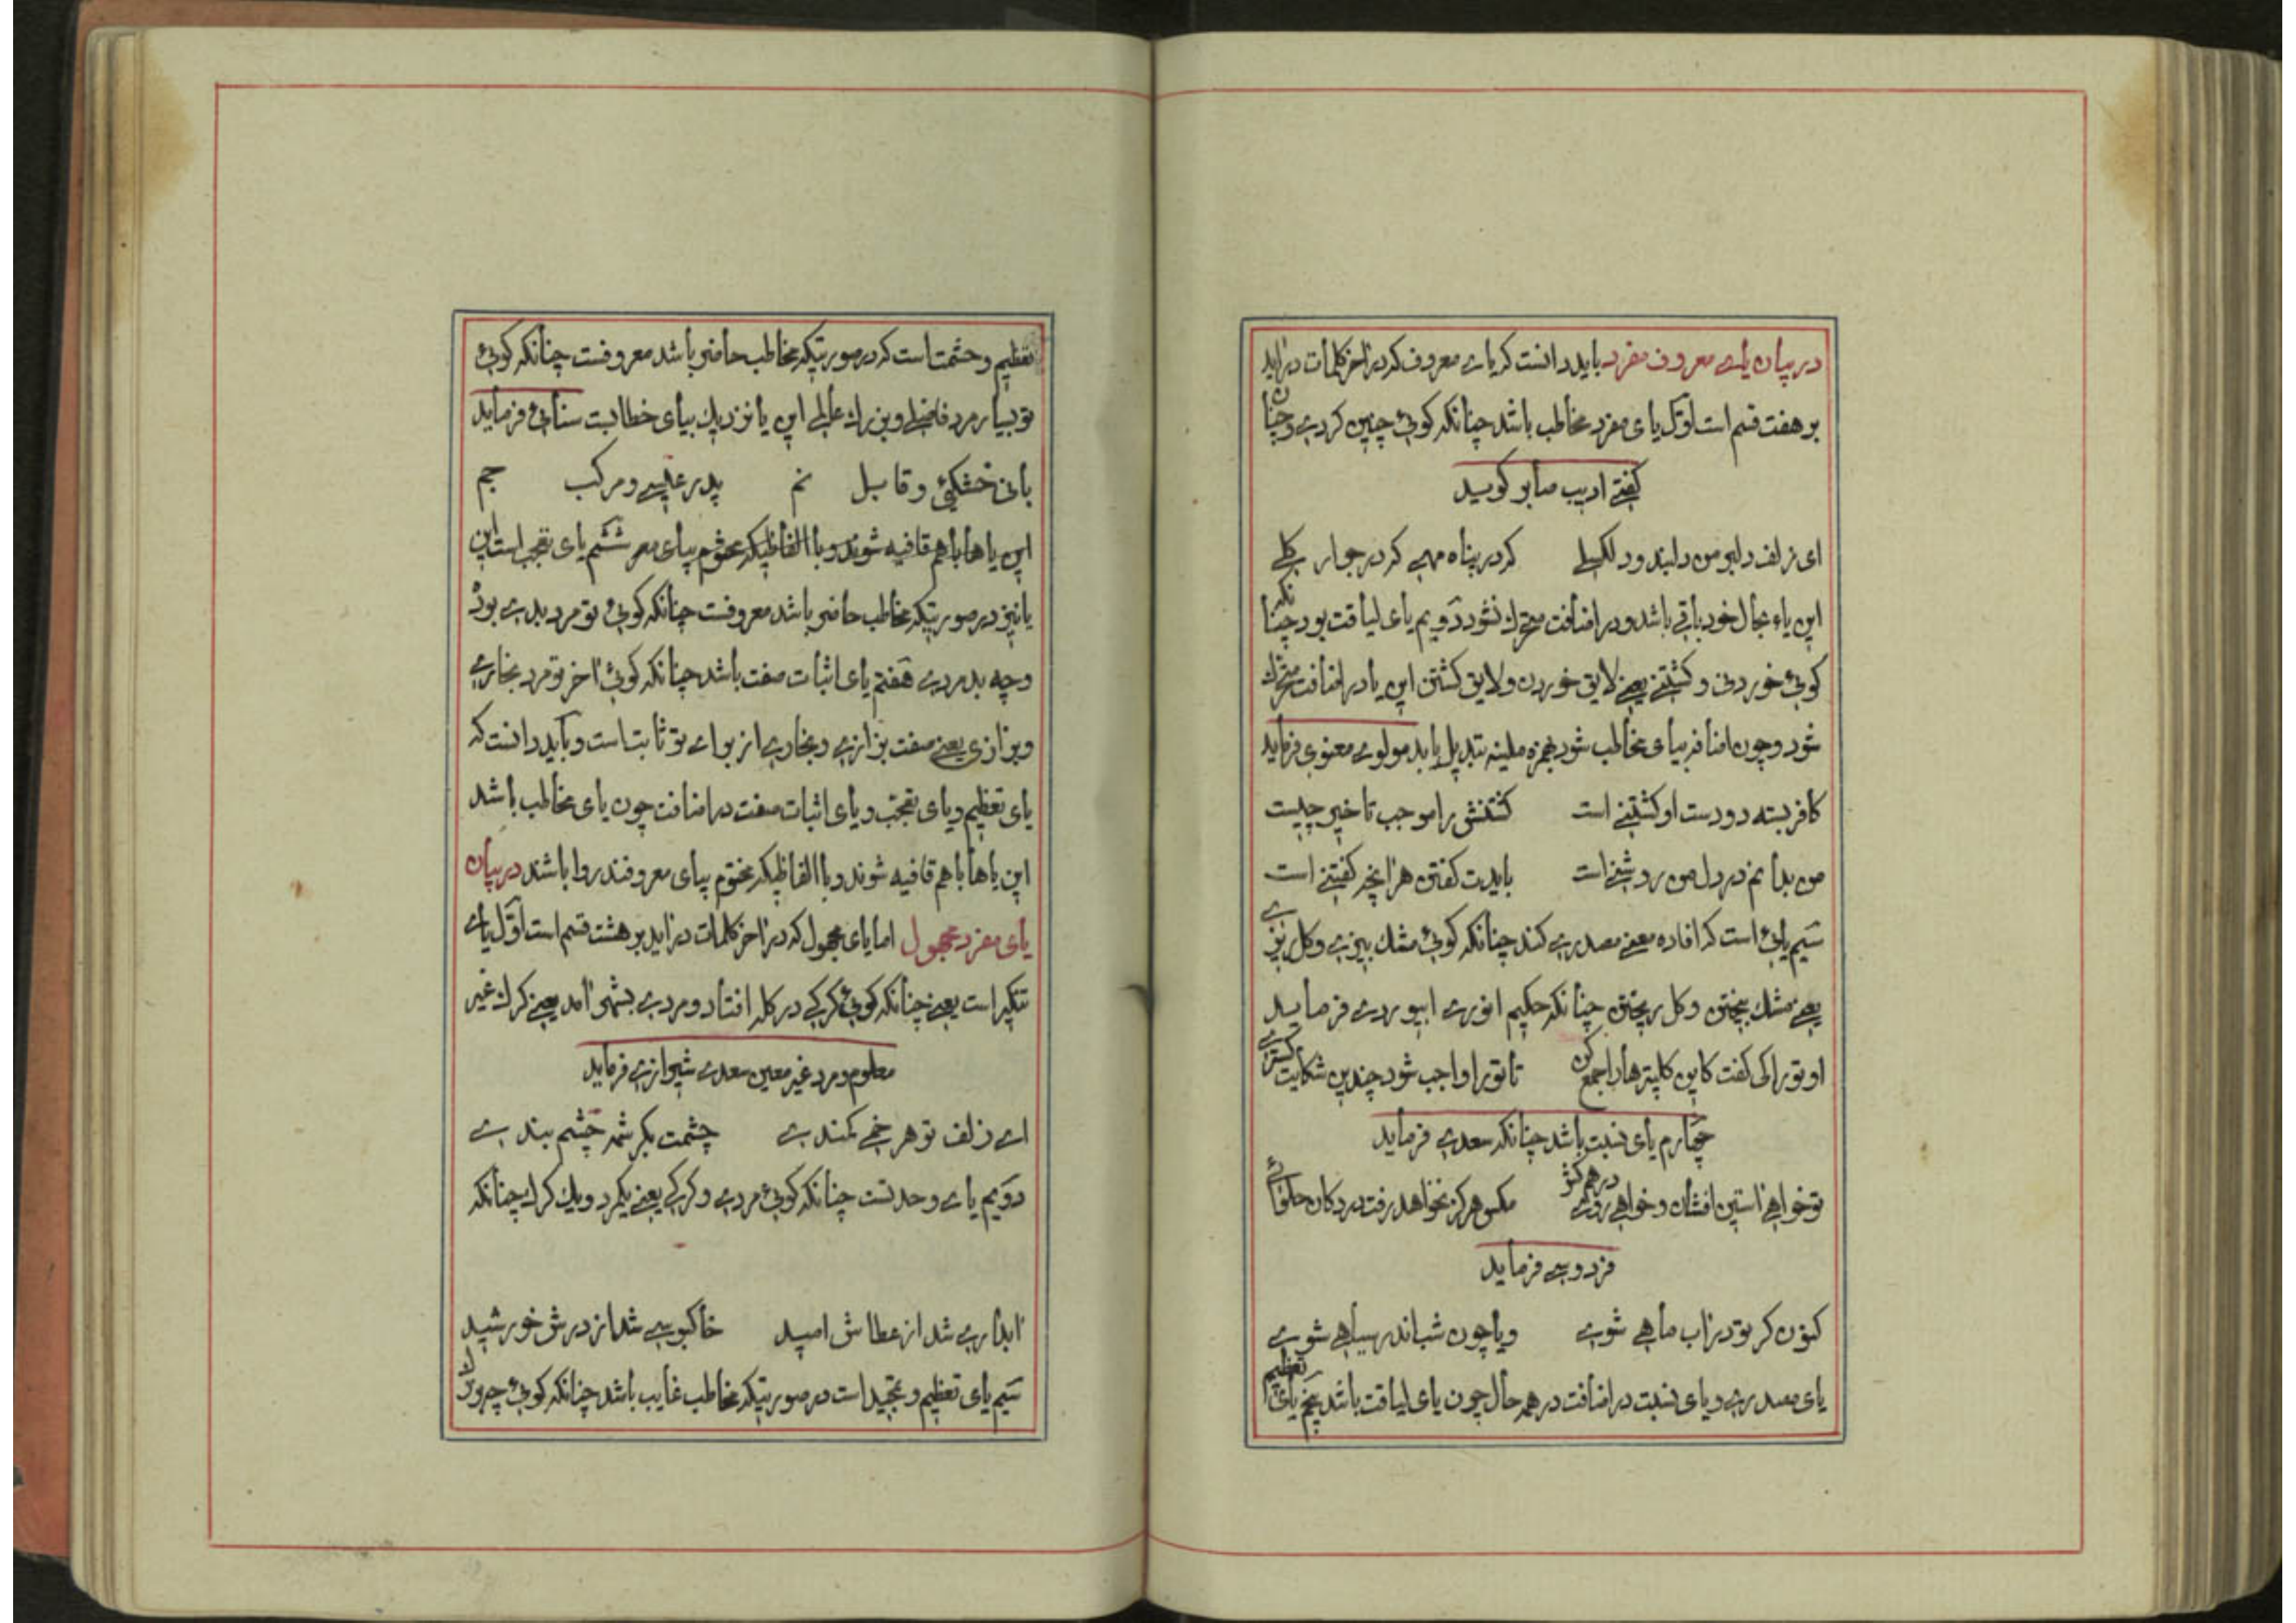 در بیان یای معروف مفرد باید دانست که یای معروف که در آخر کلمات در آید
بر هفت قسم است اوّل یای مفرد مخاطب باشد چنانکه گوئی چنین کردی و چنان
گفتی ادیب صابر گوید
ای زلف دلبر من دلبند و دلگسلی که در پناه مهی که در جوار گلی
این یاء بحال خود باقی باشد و در اضافت متحرک نشود دویم یای لیاقت بود چنانکه
گوئی خوردنی و کشتنی یعنی لایق خوردن و لایق کشتن این یا در اضافت متحرک
شود و چون اضافه بیای مخاطب شود بهمزه ملینه تبدیل یابد مولوی معنوی فرماید
کافر بسته دو دست او کشتنی است کشتنش را موجب تاخیر چیست
من بدانم در دل من روشنی است بایدت گفتن هر آنچه گفتنی است
سیم یائی است که افاده معنی مصدری کند چنانکه گوئی مشک بیزی و گل ریزی
یعنی مشک بیختن و گل ریختن چنانکه حکیم انوری ابیوردی فرماید
او تو را کی گفت کاین کلپترها را جمع کن تا تو را واجب شود چندین شکایت گستری
چهارم یای نسبت باشد چنانکه سعدی فرماید
تو خواهی آستین افشان و خواهی روی درهم کش مگس هرگز نخواهد رفت در دکان حلوائی
فردوسی فرماید
کنون گر تو در آب ماهی شوی و یا چون شب اندر سیاهی شوی
یای مصدری و یای نسبت در اضافت در همه حال چون یای لیاقت باشد پنجم یای تعظیم
تعظیم و حشمت است که در صورتیکه مخاطب حاضر باشد معروفست چنانکه گوئی
تو بسیار مرد فاضلی و بزرگ عالمی این یا نزدیک بیای خطابست سنائی فرماید
بانی خشکئ و قابل نم پدر عیسی و مرکب جم
این یاها با هم قافیه شوند و با الفاظیکه مختوم بیای معر ششم یای تعجب است این
یا نیز در صورتیکه مخاطب حاضر باشد معروفست چنانکه گوئی تو مرد بدی بودی
و چه بد مردی هفتم یای اثبات صفت باشد چنانکه گوئی آخر تو مرد بخاری
و بزازی یعنی صفت بزازی و بخاری از برای تو ثابت است و باید دانست که
یای تعظیم و یای تعجب و یای اثبات صفت در اضافت چون یای مخاطب باشد
این یاها با هم قافیه شوند و با الفاظیکه مختوم بیای معروفند روا باشند در بیان
یای مفرد مجهول اما یای مجهول که در آخر کلمات در آید بر هشت قسم است اوّل یای
تنکیر است یعنی چنانکه گوئی گرگی در گله افتاد و مردی بشهر آمد یعنی گرگ غیر
معلوم و مرد غیر معین سعدی شیرازی فرماید
ای زلف تو هر خمی کمندی چشمت بکرشمه چشم بندی
دویم یای وحدتست چنانکه گوئی مردی و گرگی یعنی یکمرد و یک گرگ چنانکه
آبداری شد از عطاش امید خاکبوسی شد از درش خورشید
سیم یای تعظیم و تمجید است در صورتیکه مخاطب غایب باشد چنانکه گوئی چه بزرگ